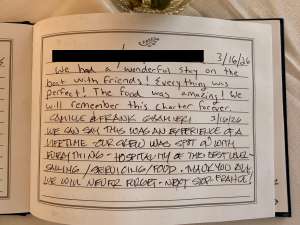 3/16/26
We had a wonderful stay on the
boat with friends! Everything was
perfect! The food was amazing! We
will remember this charter forever.
CAMILLE & FRANK 3/16/26
WE CAN SAY THIS WAS AN EXPERIENCE OF A
LIFETIME - OUR CREW WAS SPOT ON WITH
EVERYTHING - HOSPITALITY AT ITS BEST LEVEL -
SAILING / SERVICING / FOOD. THANK YOU ALL
WE WILL NEVER FORGET - NEXT STOP FRANCE!